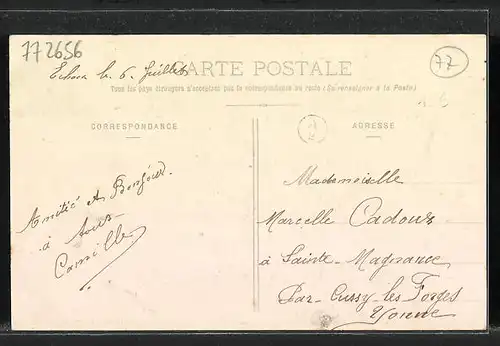 772656
77
Echou le 6 Juillet
CARTE POSTALE
Tous les pays étrangers n'acceptent pas la correspondance au recto (Se renseigner à la Poste)
CORRESPONDANCE
ADRESSE
Amitié et Bonjour
à tous
Camille
Mademoiselle
Marcelle Cadoux
à Sainte-Magnance
Par-Cussy-les-Forges
Yonne